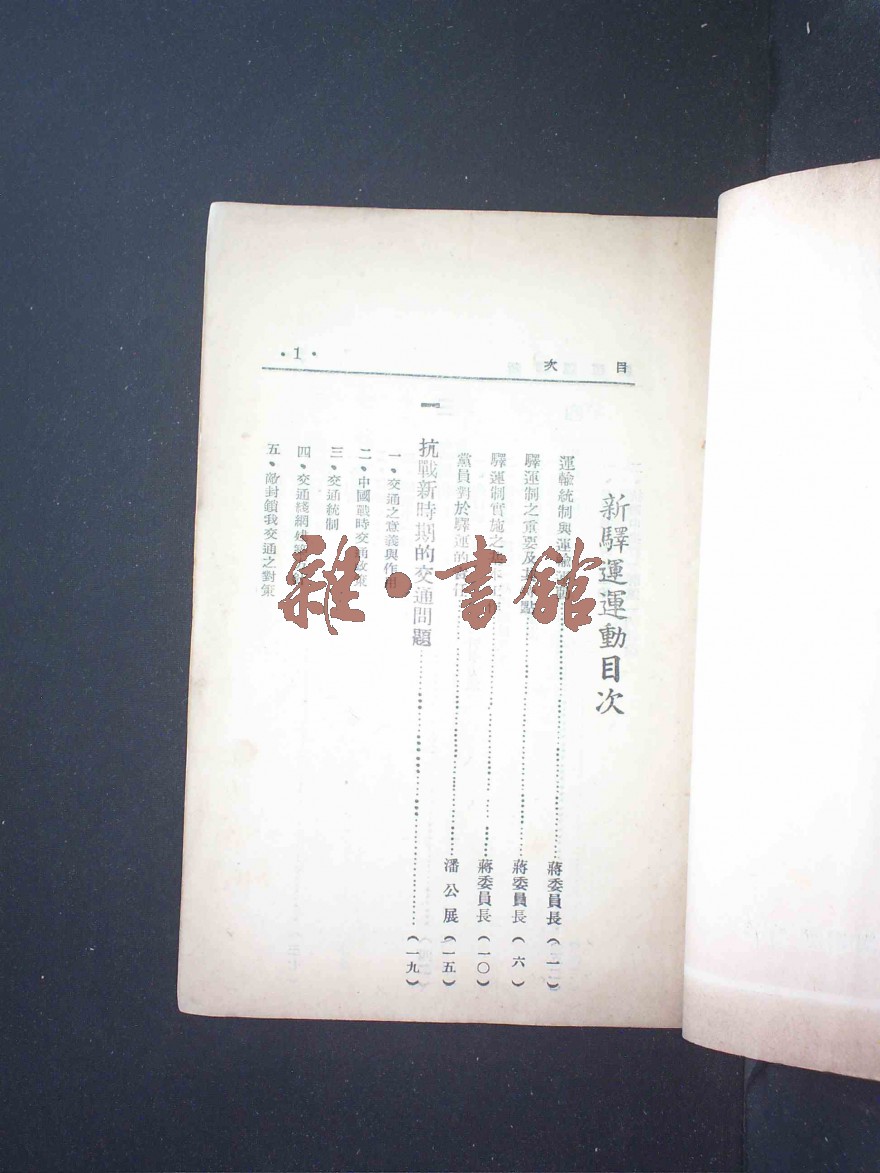 目次
・1・
新驛運運動目次
運輸統制與運輸……蔣委員長（一二）
驛運制之重要及其 點……蔣委員長（六）
驛運制實施之……蔣委員長（一〇）
黨員對於驛運的……潘公展（一五）
一 抗戰新時期的交通問題……（一九）
一・交通之意義與作用
二・中國戰時交通政策
三・交通統制
四・交通綫網
五・敵封鎖我交通之對策
雜・書館